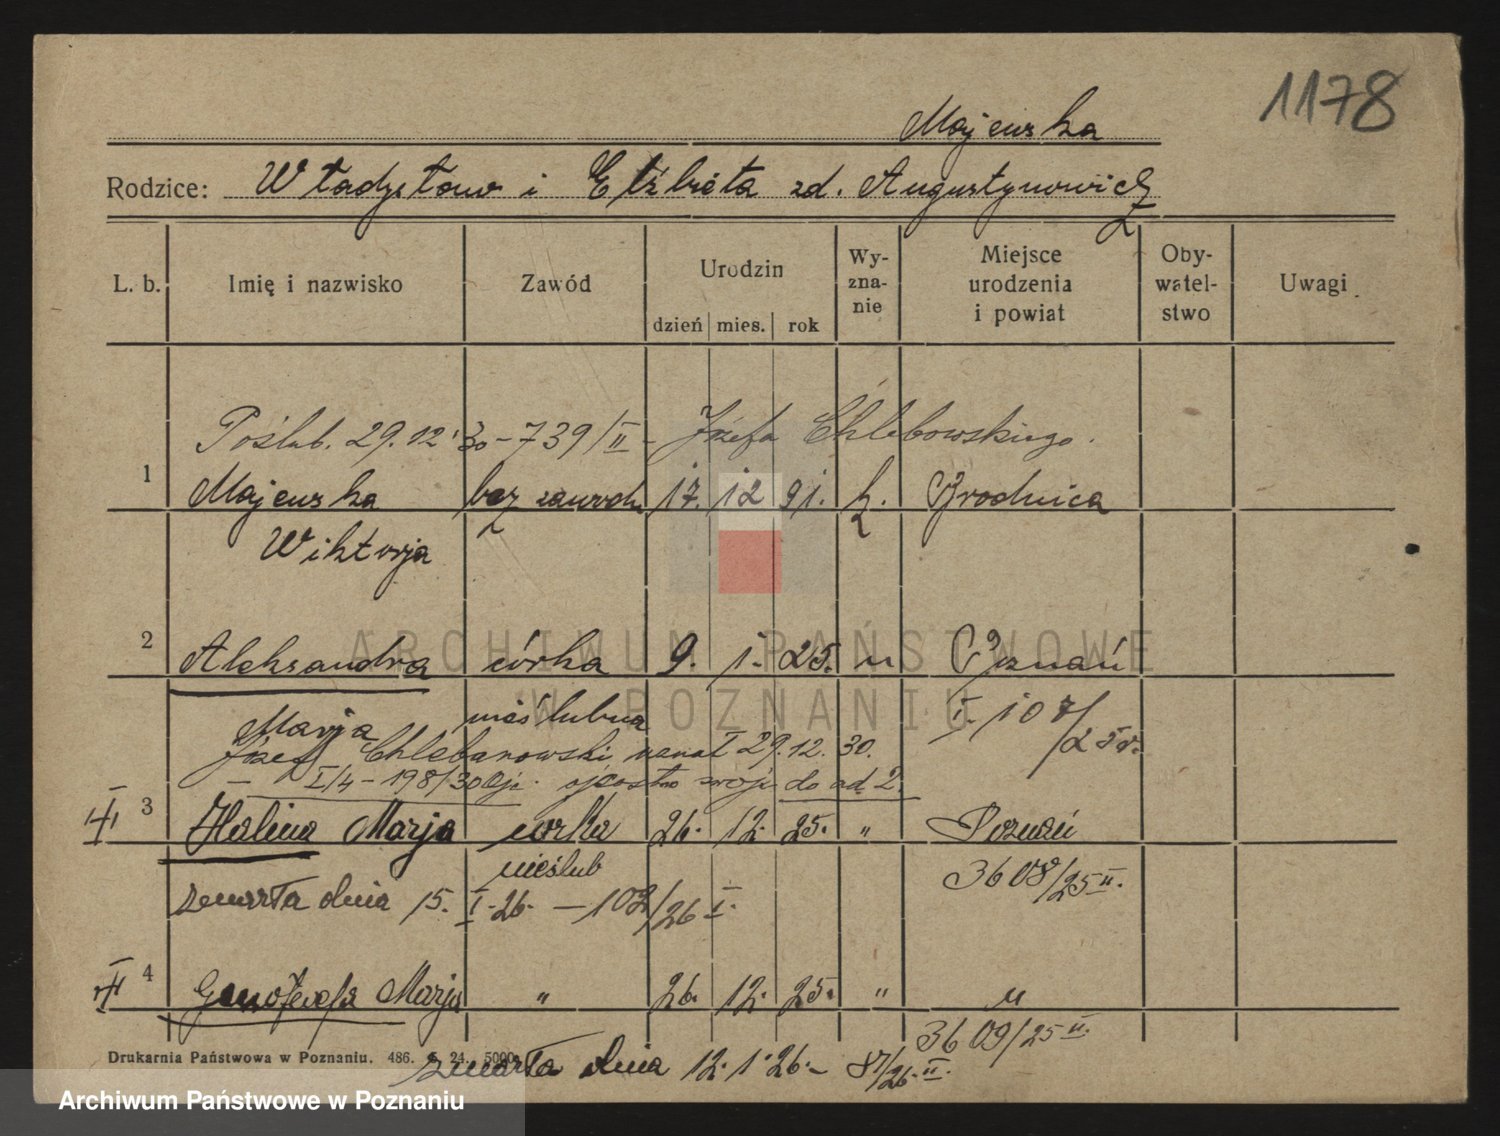 1178
Majewska
Rodzice: Władysław i Elżbieta zd. Augustynowicz
L. b. Imię i nazwisko Zawód Urodzin dzień mies. rok Wy-zna-nie Miejsce urodzenia i powiat Oby-watel-stwo Uwagi
Poślub. 29.12.30 - 739/II - Józefa Chlebowskiego.
1 Majewska bez zawodu 17. 12 91. k. Brodnica
Wiktorja
2 Aleksandra córka 9. 1. 25. " Poznań
Marja nieślubna I. 107/25r.
Józef uznał 29.12.30.
I/4 - 198/30 ojcostwo swoje do ad 2.
3 Halina Marja córka 26. 12. 25. " Poznań
nieślub 3608/25 II.
zmarła dnia 15. I. 26. - 102/26 I.
4 Genowefa Marja " 26. 12. 25. " "
3609/25 II.
Drukarnia Państwowa w Poznaniu. 486. 24. 5000
zmarła dnia 12. 1. 26. - 87/26 II.
ARCHIWUM PAŃSTWOWE
W POZNANIU
Archiwum Państwowe w Poznaniu